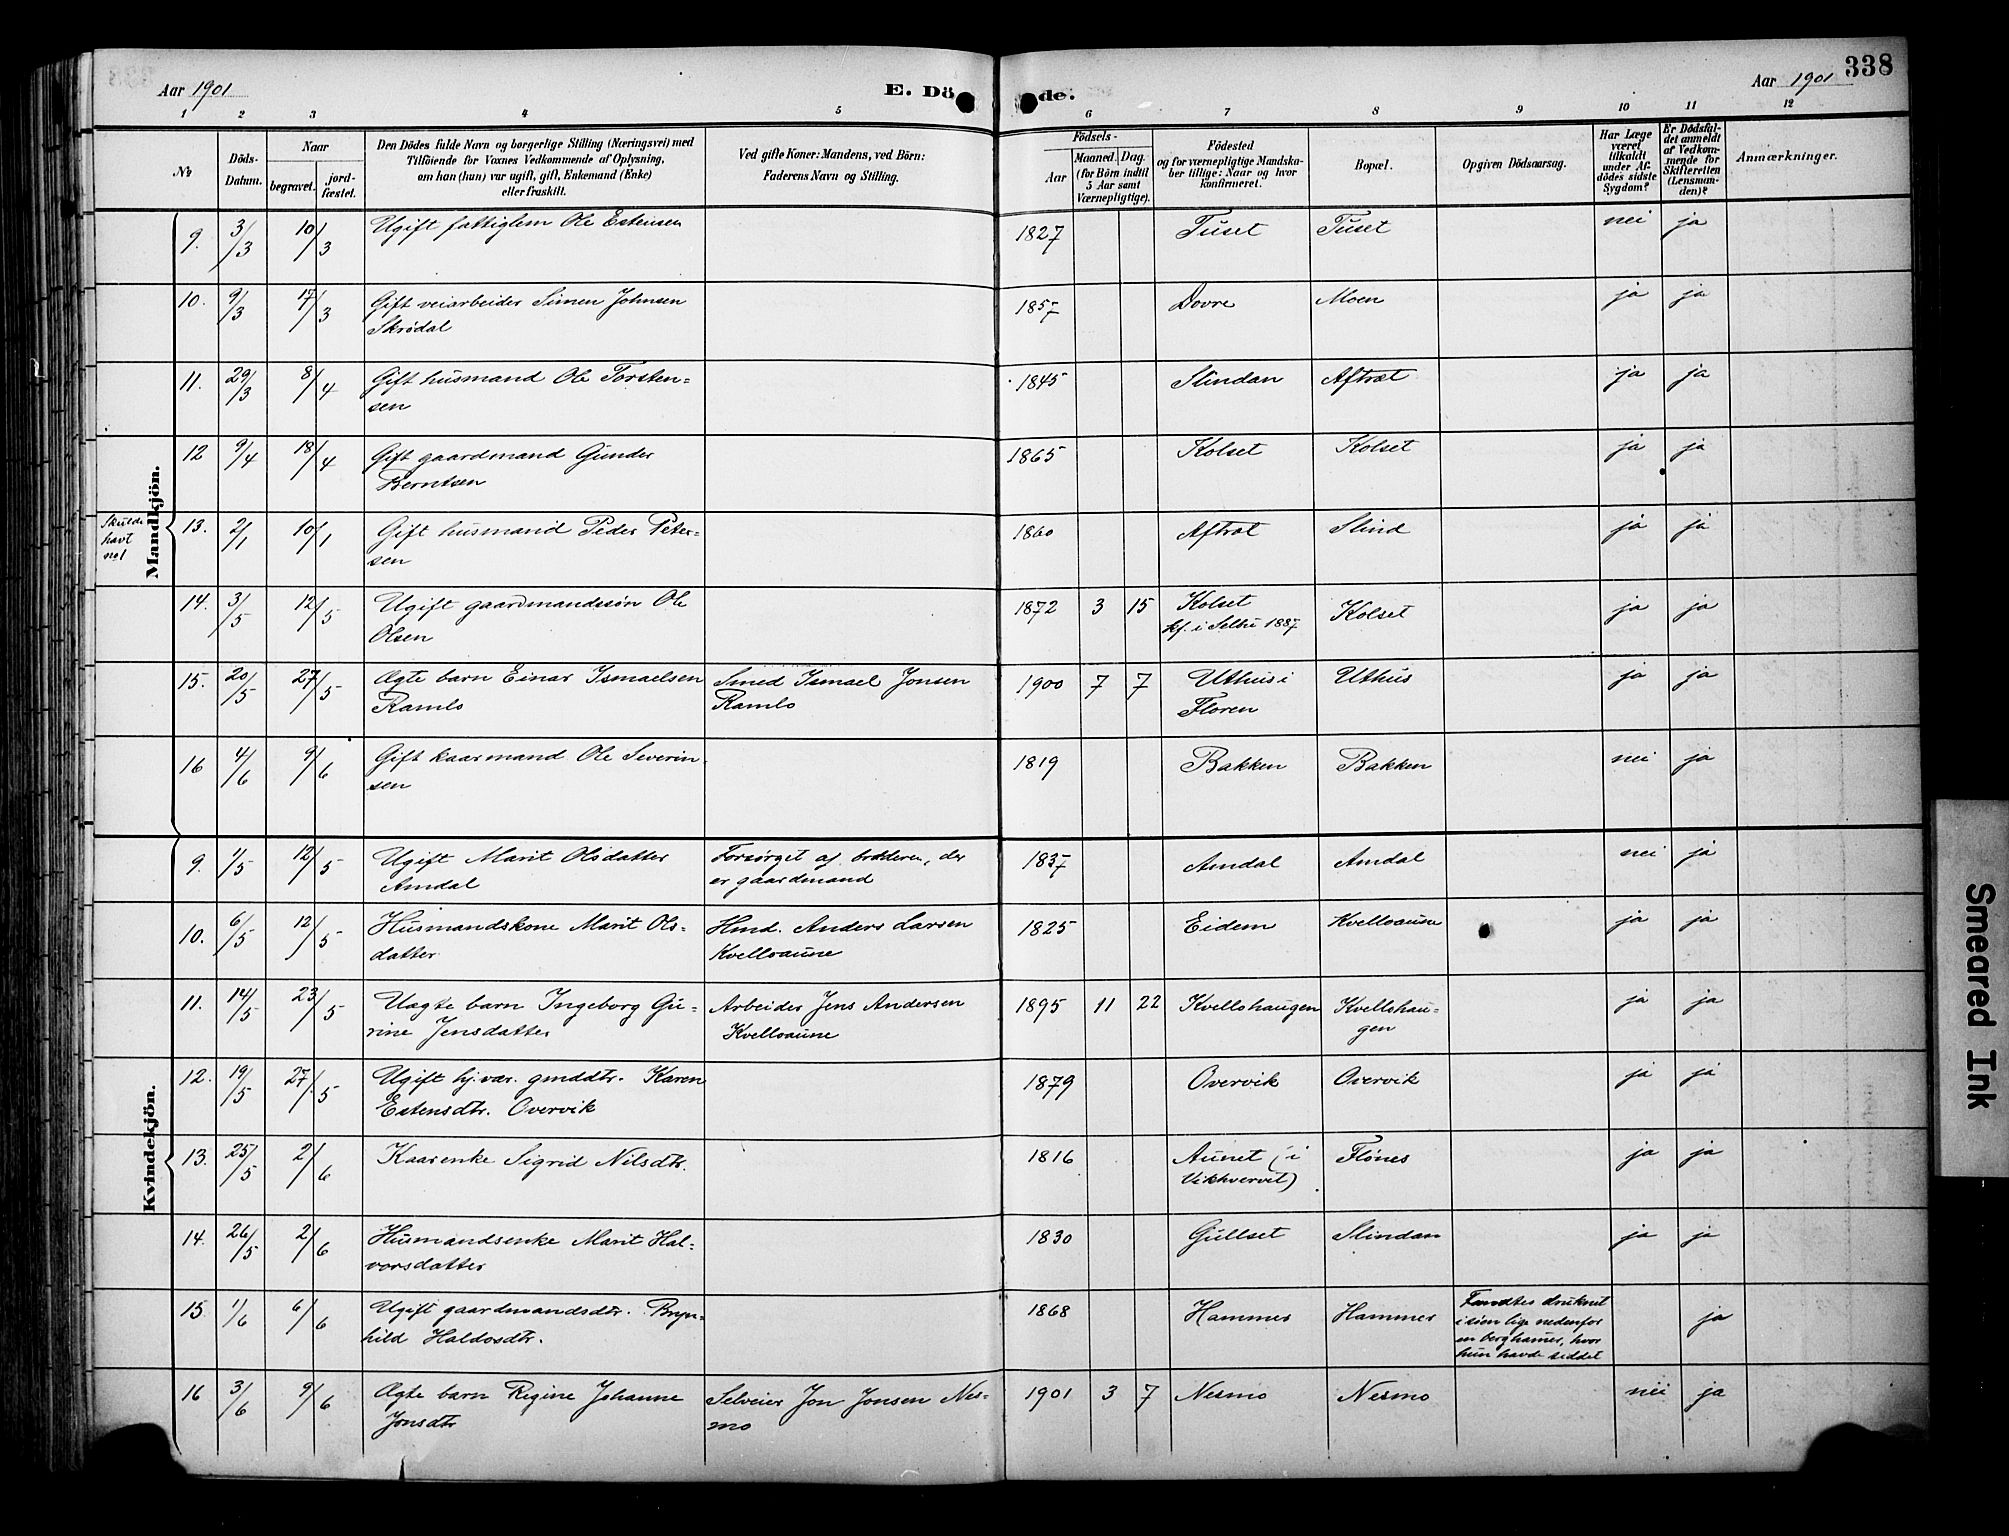 Aar 1901 E. Dö de. Aar 1901 338
1 2 3 4 5 6 7 8 9 10 11 12
No Döds-Datum. Naar begravet. jord-fæstet. Den Dödes fulde Navn og borgerlige Stilling (Næringsvei) med Tilföiende for Voxnes Vedkommende af Oplysning, om han (hun) var ugift, gift, Enkemand (Enke) eller fraskilt. Ved gifte Koner: Mandens, ved Börn: Faderens Navn og Stilling. Födsels- Aar Maaned. Dag. (for Börn indtil 5 Aar samt Værnepligtige). Födested og for værnepligtige Mandska-ber tillige: Naar og hvor konfirmeret. Bopæl. Opgiven Dödsaarsag. Har Læge været tilkaldt under Af-dödes sidste Sygdom? Er Dödsfal-det anmeldt af Vedkom-mende for Skifteretten (Lensman-den)? Anmærkninger.
Mandkjön.
9. 3/3 10/3 Ugift fattiglem Ole Estensen 1827 Tuset Tuset nei ja
10. 9/3 17/3 Gift veiarbeider Simen Johnsen 1857 Dovre Moen ja ja
Skrødal
11. 29/3 8/4 Gift husmand Ole Torsten= 1845 Slindan Aftret ja ja
sen
12 9/4 18/4 Gift gaardmand Gunder 1865 Kolset Kolset ja ja
Berntsen
Skulde
havt
no 1
13. 2/1 10/1 Gift husmand Peder Peter- 1860 Aftret Slind ja ja
sen
14. 3/5 12/5 Ugift gaardmandssøn Ole 1872 3 15 Kolset Kolset ja ja
Olsen kf. i Selbu 1887
15. 20/5 27/5 Ægte barn Einar Ismaelsen Smed Ismael Jonsen 1900 7 7 Uthus i Uthus ja ja
Ramlo Ramlo Floren
16 4/6 9/6 Gift kaarmand Ole Severin- 1819 Bakken Bakken nei ja
sen
Kvindekjön.
9. 1/5 12/5 Ugift Marit Olsdatter Forsørget af broderen, der 1837 Amdal Amdal nei ja
Amdal er gaardmand
10. 6/5 12/5 Husmandskone Marit Ols- Hmd. Anders Larsen 1825 Eidem Kvelloaune ja ja
datter Kvelloaune
11. 14/5 23/5 Uægte barn Ingeborg Gu- Arbeider Jens Andersen 1895 11 22 Kvellohaugen Kvellohau= ja ja
rine Jensdatter Kvelloaune gen
12. 19/5 27/5 Ugift hj.vær. gmddtr. Karen 1879 Overvik Overvik ja ja
Estensdtr. Overvik
13. 25/5 2/6 Kaarenke Sigrid Nilsdtr. 1816 Aunet (i Flønes ja ja
Vikhvervet)
14. 26/5 2/6 Husmandsenke Marit Hal- 1830 Gullset Slindan ja ja
vorsdatter
15. 1/6 6/6 Ugift gaardmandsdtr. Bryn- 1868 Hammer Hammer Fandtes druknet ja
hild Haldosdtr. i sjøen lige nedenfor
en berghamer, hvor
hun havde siddet
16 3/6 9/6 Ægte barn Regine Johanne Selveier Jon Jonsen Nes- 1901 3 7 Nesmo Nesmo nei ja
Jonsdtr mo
Smeared Ink